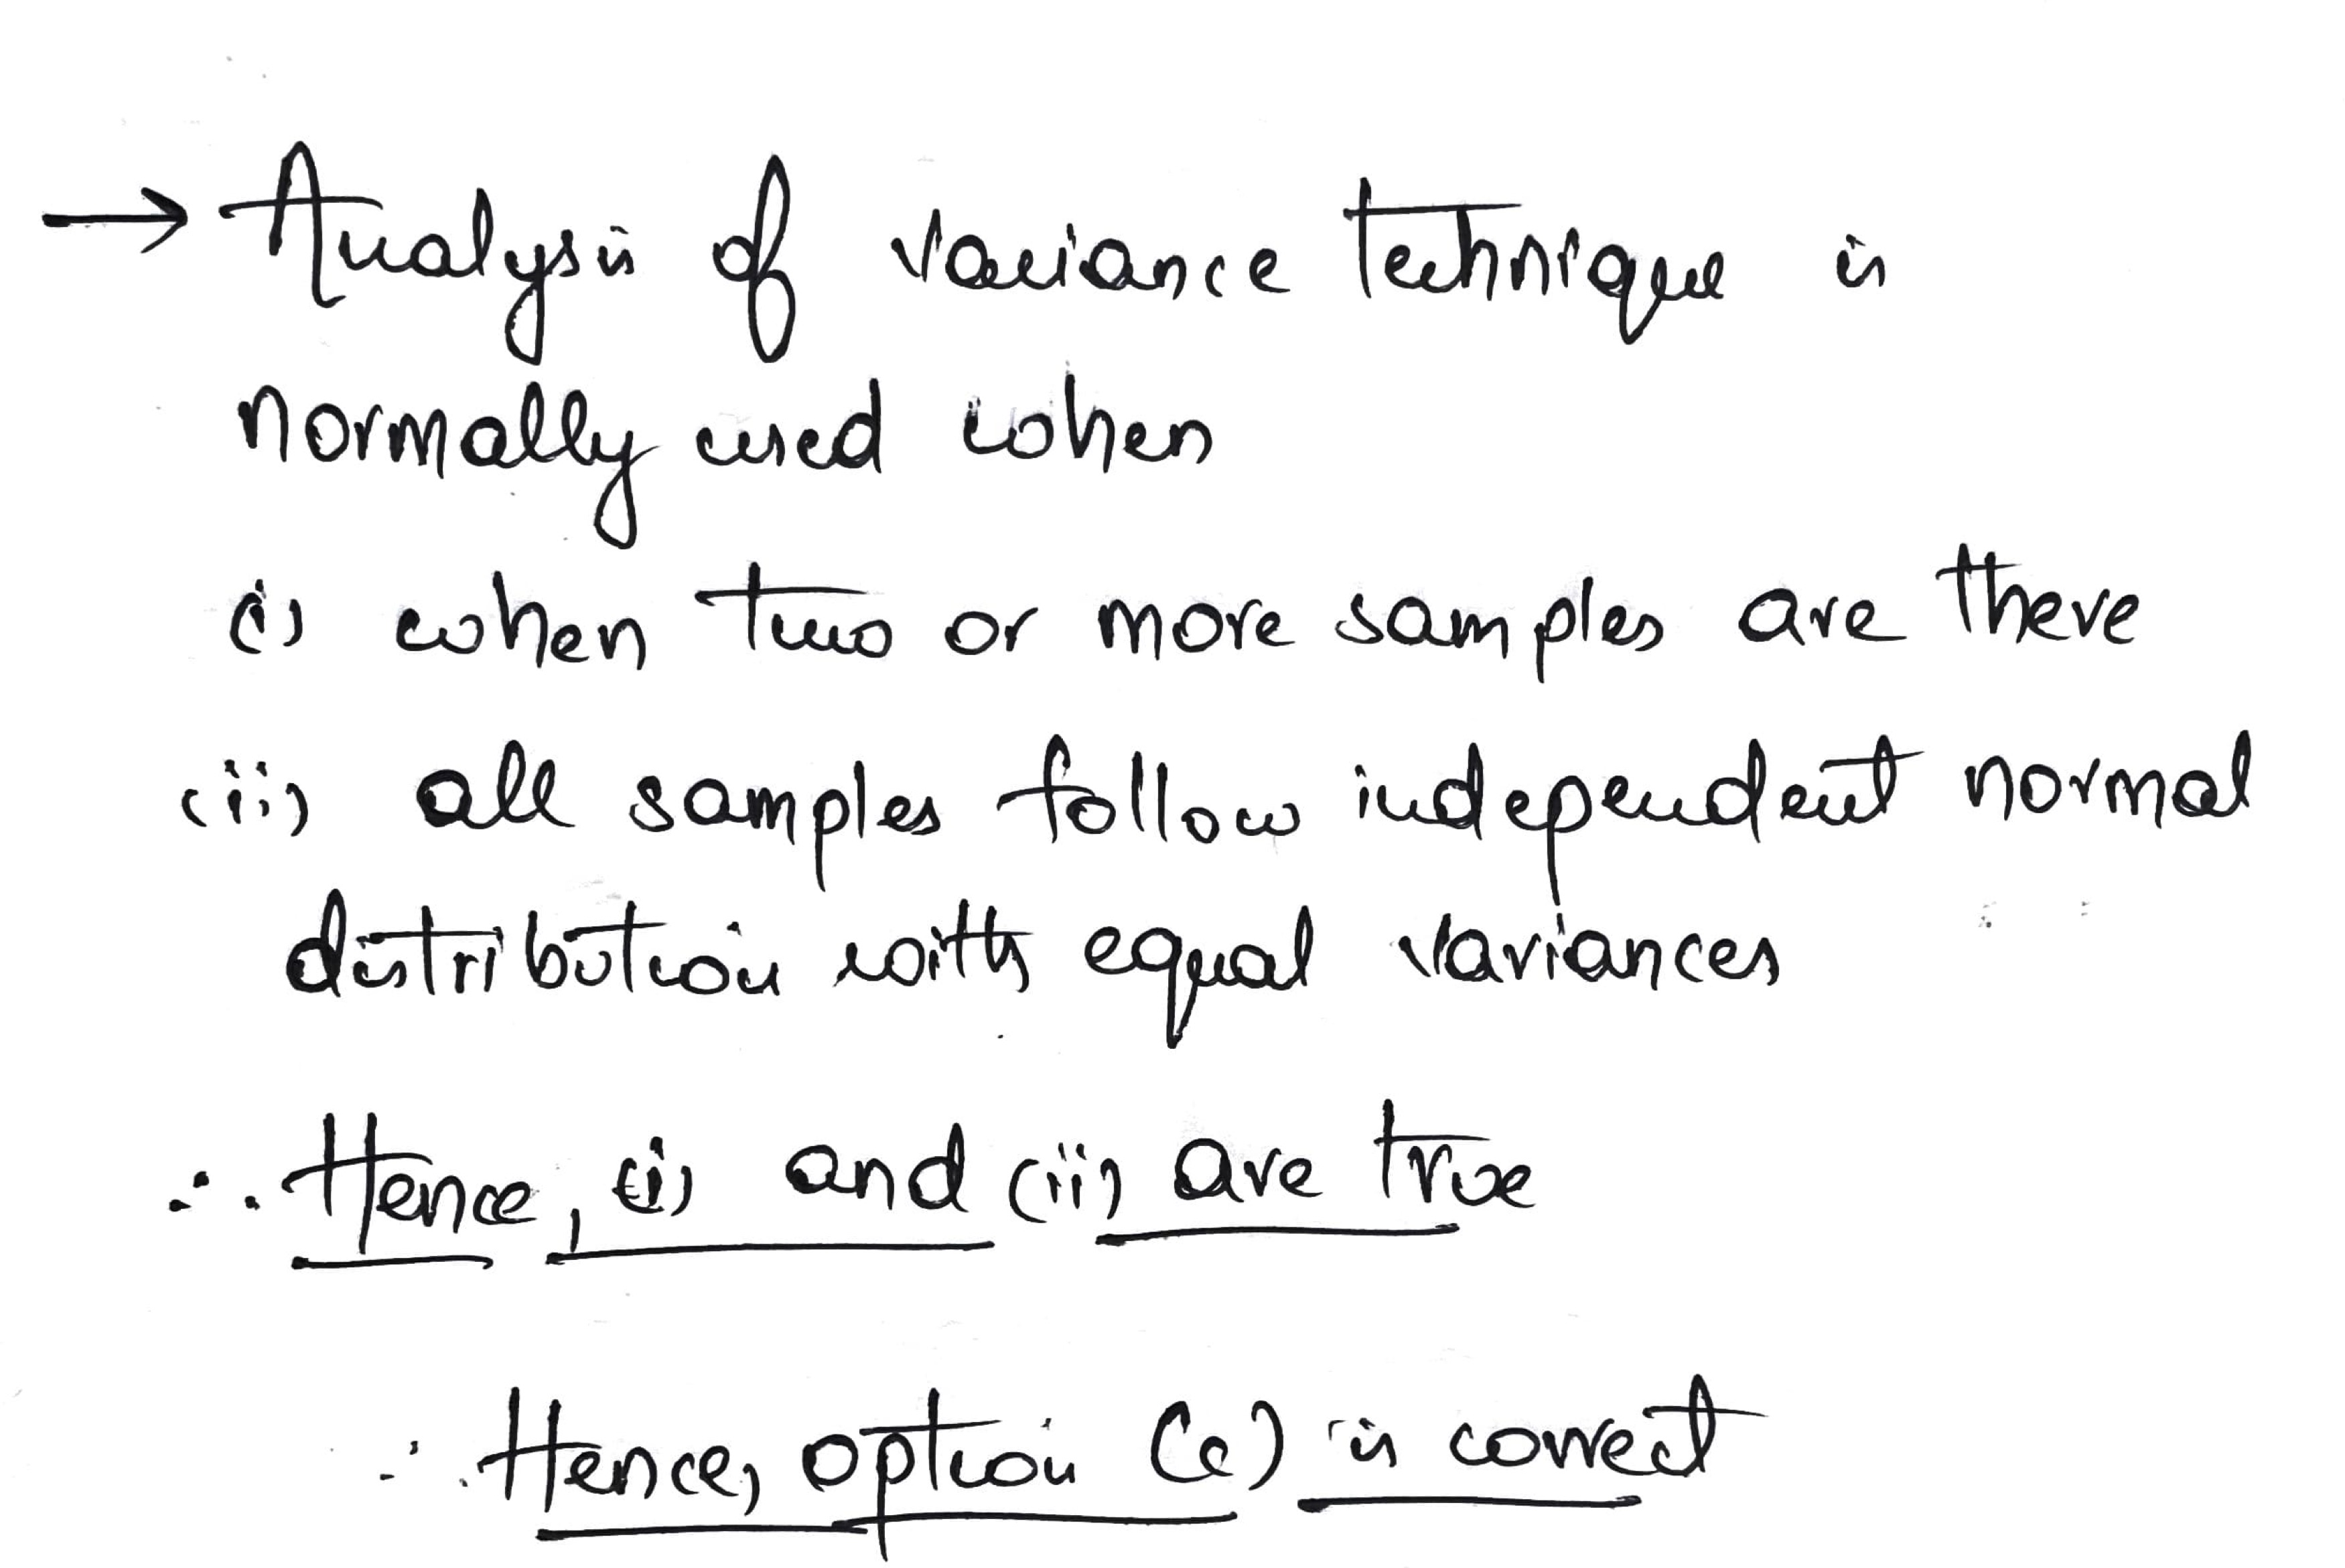 → Analysis of variance technique is
normally used when
(i) when two or more samples are there
(ii) all samples follow independent normal
distribution with equal variances
∴ Hence, (i) and (ii) are true
∴ Hence, option is correct